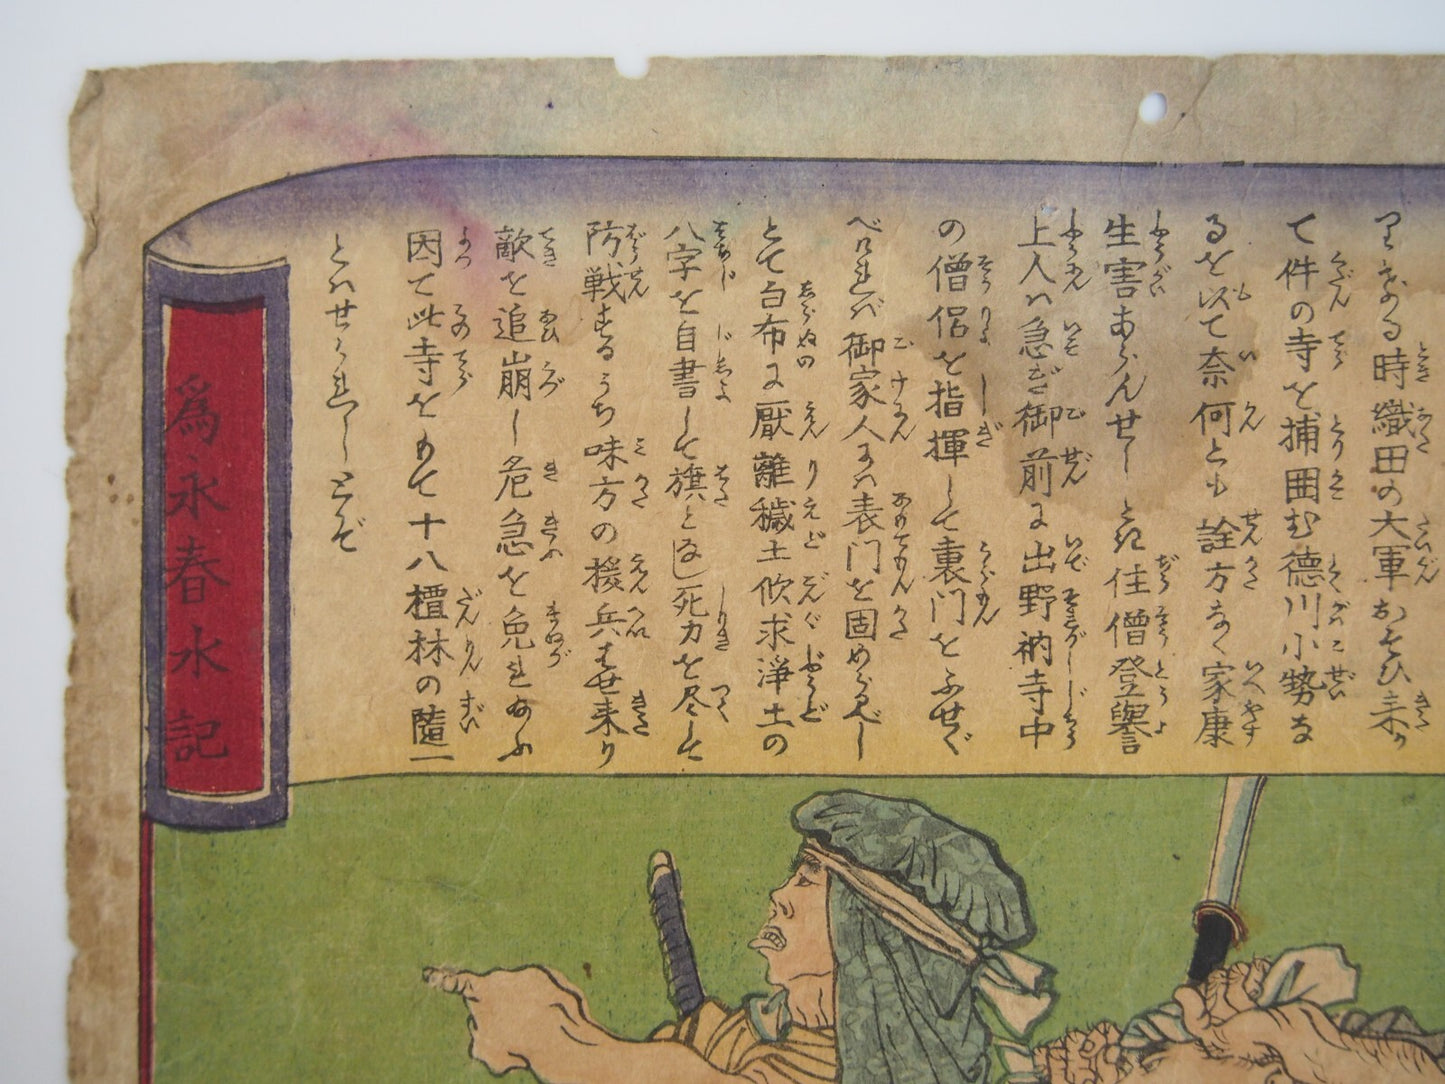 りまゐる時織田の大軍おそひ来り
て件の寺を捕囲む德川小勢な
るを以て奈何とも詮方なく家康
生害あらんせしとき住僧登譽
上人ハ急ぎ御前に出野衲寺中
の僧侶を指揮して裏門をふせぐ
べけれバ御家人にハ表門を固め給ふべし
とて白布に厭離穢土欣求浄土の
八字を自書して旗となし死力を尽して
防戦するうち味方の援兵はせ来り
敵を追崩し危急を免れ給ふ
因て此寺をもて十八檀林の随一
とハせられしとぞ
爲永春水記